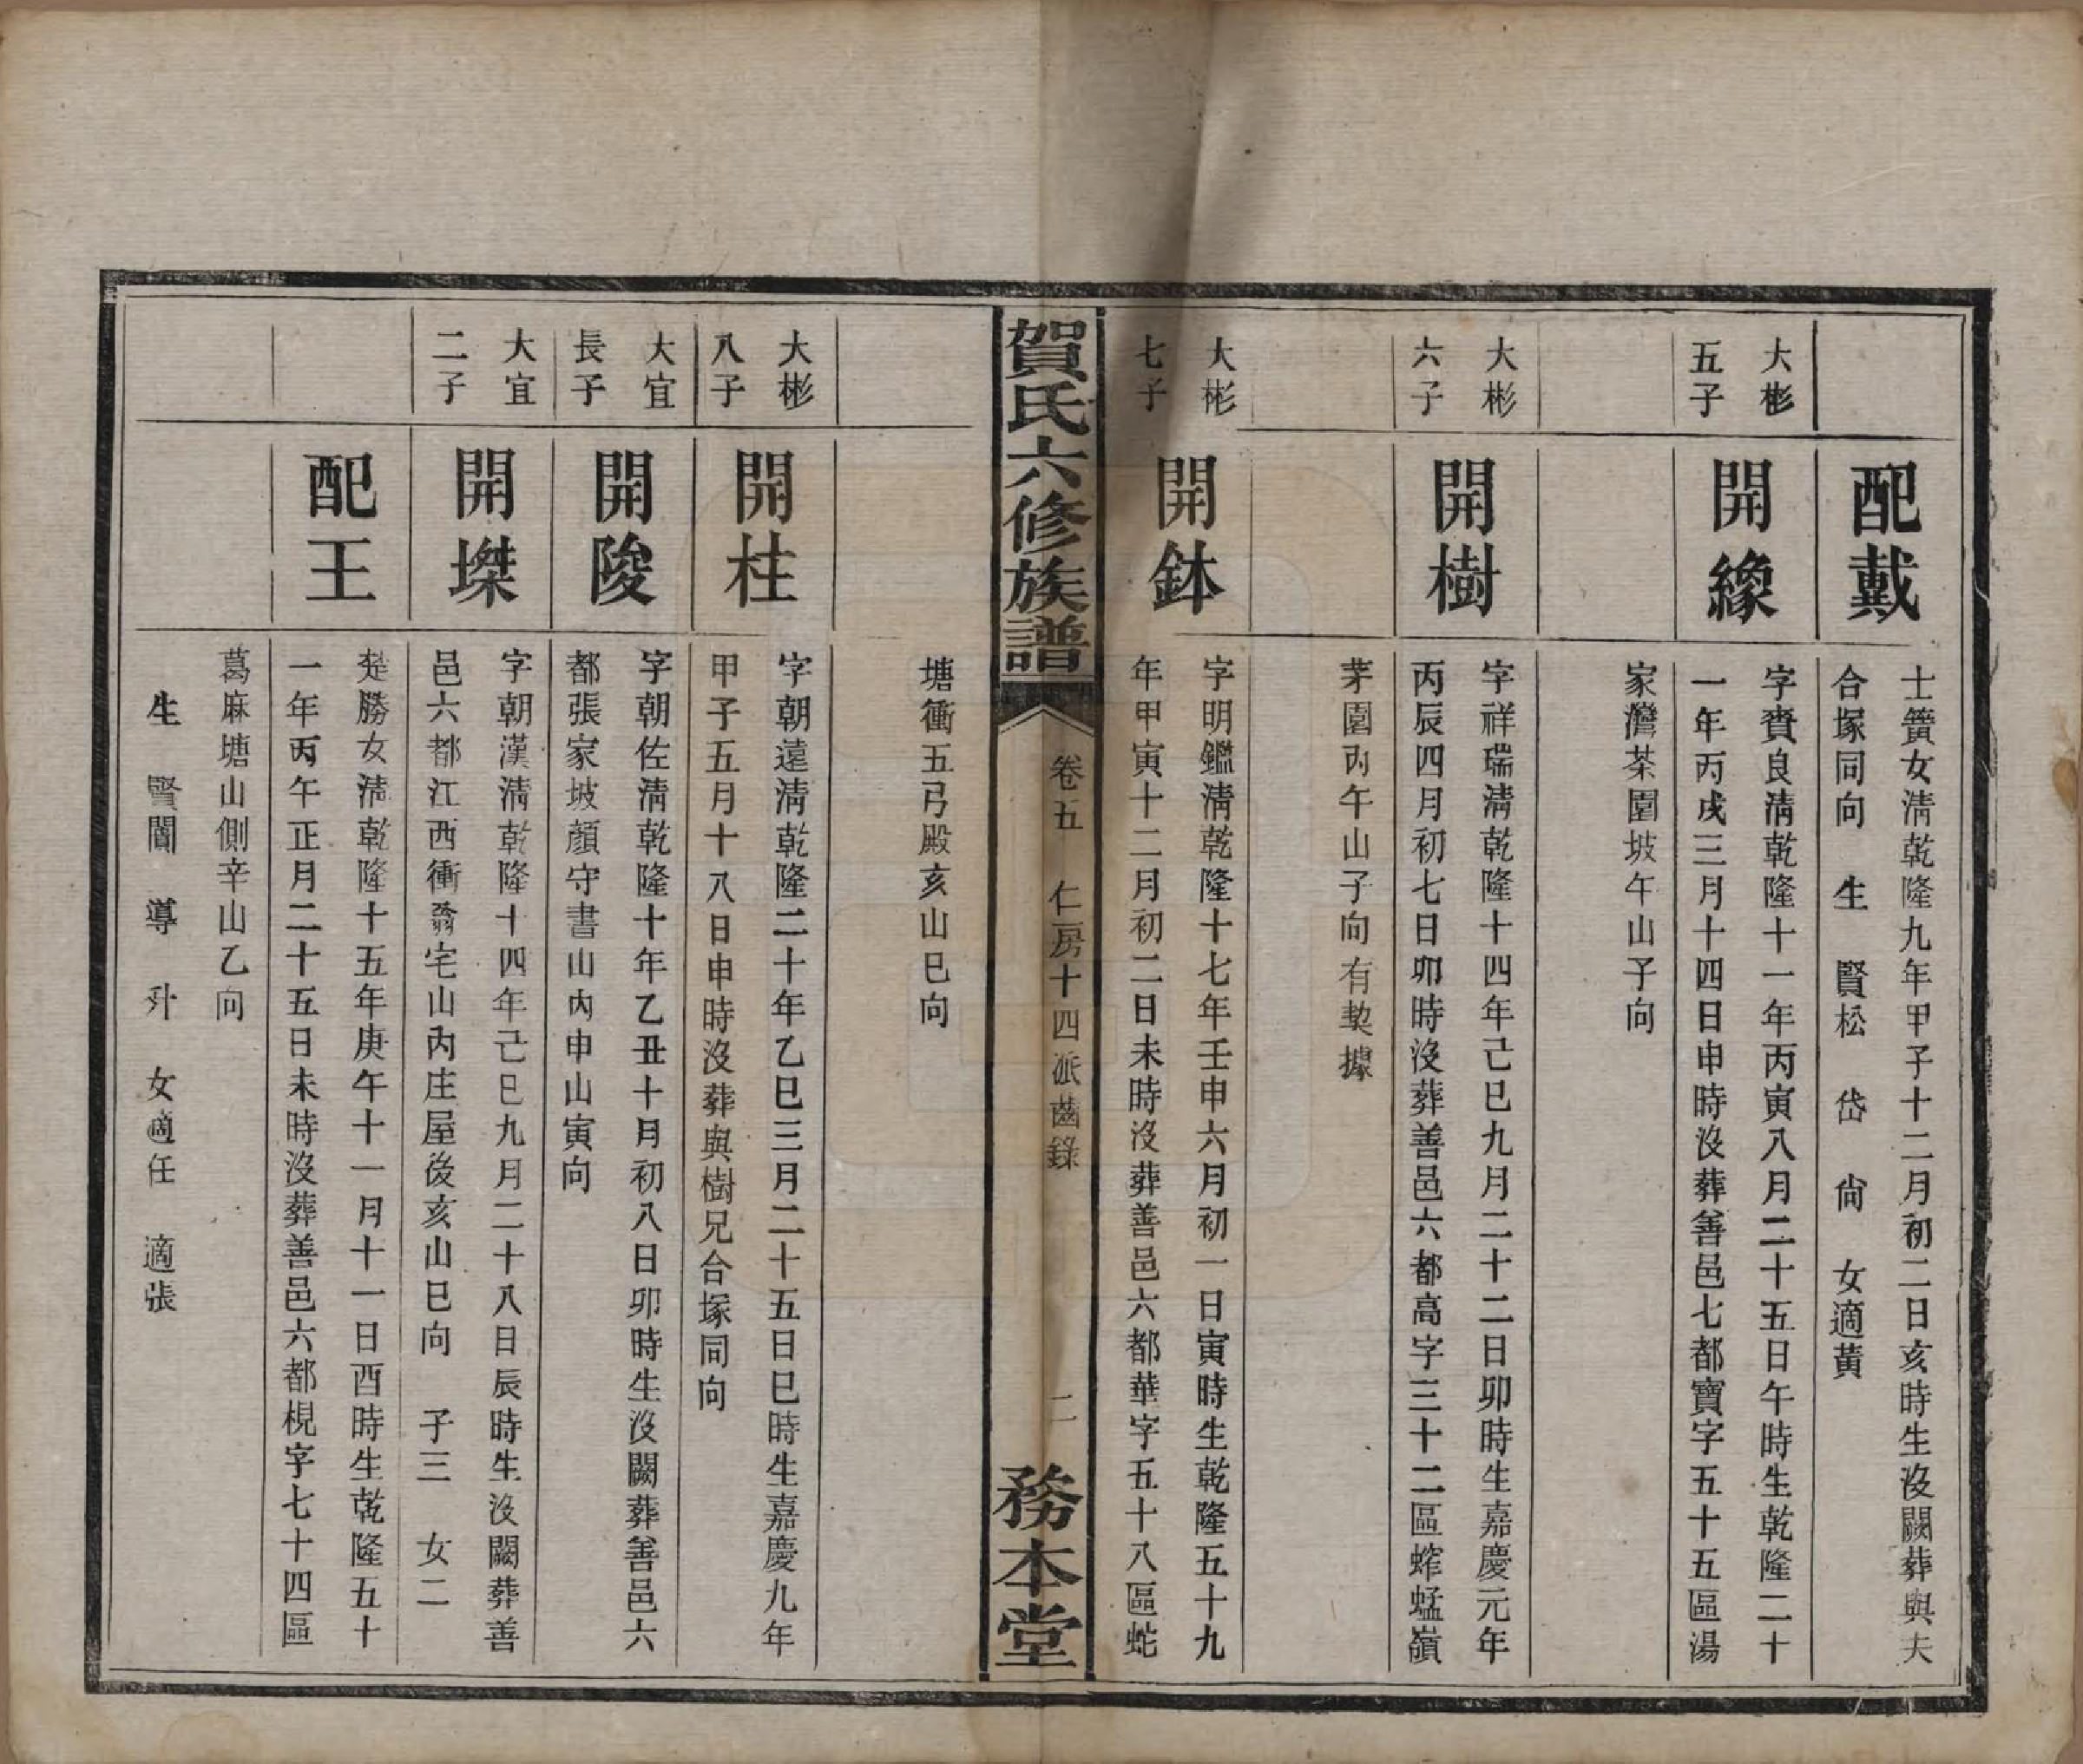 配戴
士簧女淸乾隆九年甲子十二月初二日亥時生沒闕葬與夫
合塚同向　生　賢松　岱　尙　女適黃
大彬
五子
開緣
字賚良淸乾隆十一年丙寅八月二十五日午時生乾隆二十
一年丙戌三月十四日申時沒葬善邑七都寶字五十五區湯
家灣茶園坡午山子向
大彬
六子
開樹
字祥瑞淸乾隆十四年己巳九月二十二日卯時生嘉慶元年
丙辰四月初七日卯時沒葬善邑六都高字三十二區蚱蜢嶺
茅園內午山子向有契據
大彬
七子
開鉢
字明鑑淸乾隆十七年壬申六月初一日寅時生乾隆五十九
年甲寅十二月初二日未時沒葬善邑六都華字五十八區蛇
賀氏六修族譜
卷五　仁房十四派齒錄
二
務本堂
塘衝五弓殿亥山巳向
大彬
八子
開柱
字朝遠淸乾隆二十年乙巳三月二十五日巳時生嘉慶九年
甲子五月十八日申時沒葬與樹兄合塚同向
大宜
長子
開陵
字朝佐淸乾隆十年乙丑十月初八日卯時生沒闕葬善邑六
都張家坡顏守書山內申山寅向
大宜
二子
開榤
字朝漢淸乾隆十四年己巳九月二十八日辰時生沒闕葬善
邑六都江西衝翁宅山內庄屋後亥山巳向　子三　女二
配王
楚勝女淸乾隆十五年庚午十一月十一日酉時生乾隆五十
一年丙午正月二十五日未時沒葬善邑六都梘字七十四區
葛麻塘山側辛山乙向
生　賢闓　導　升　女適任　適張